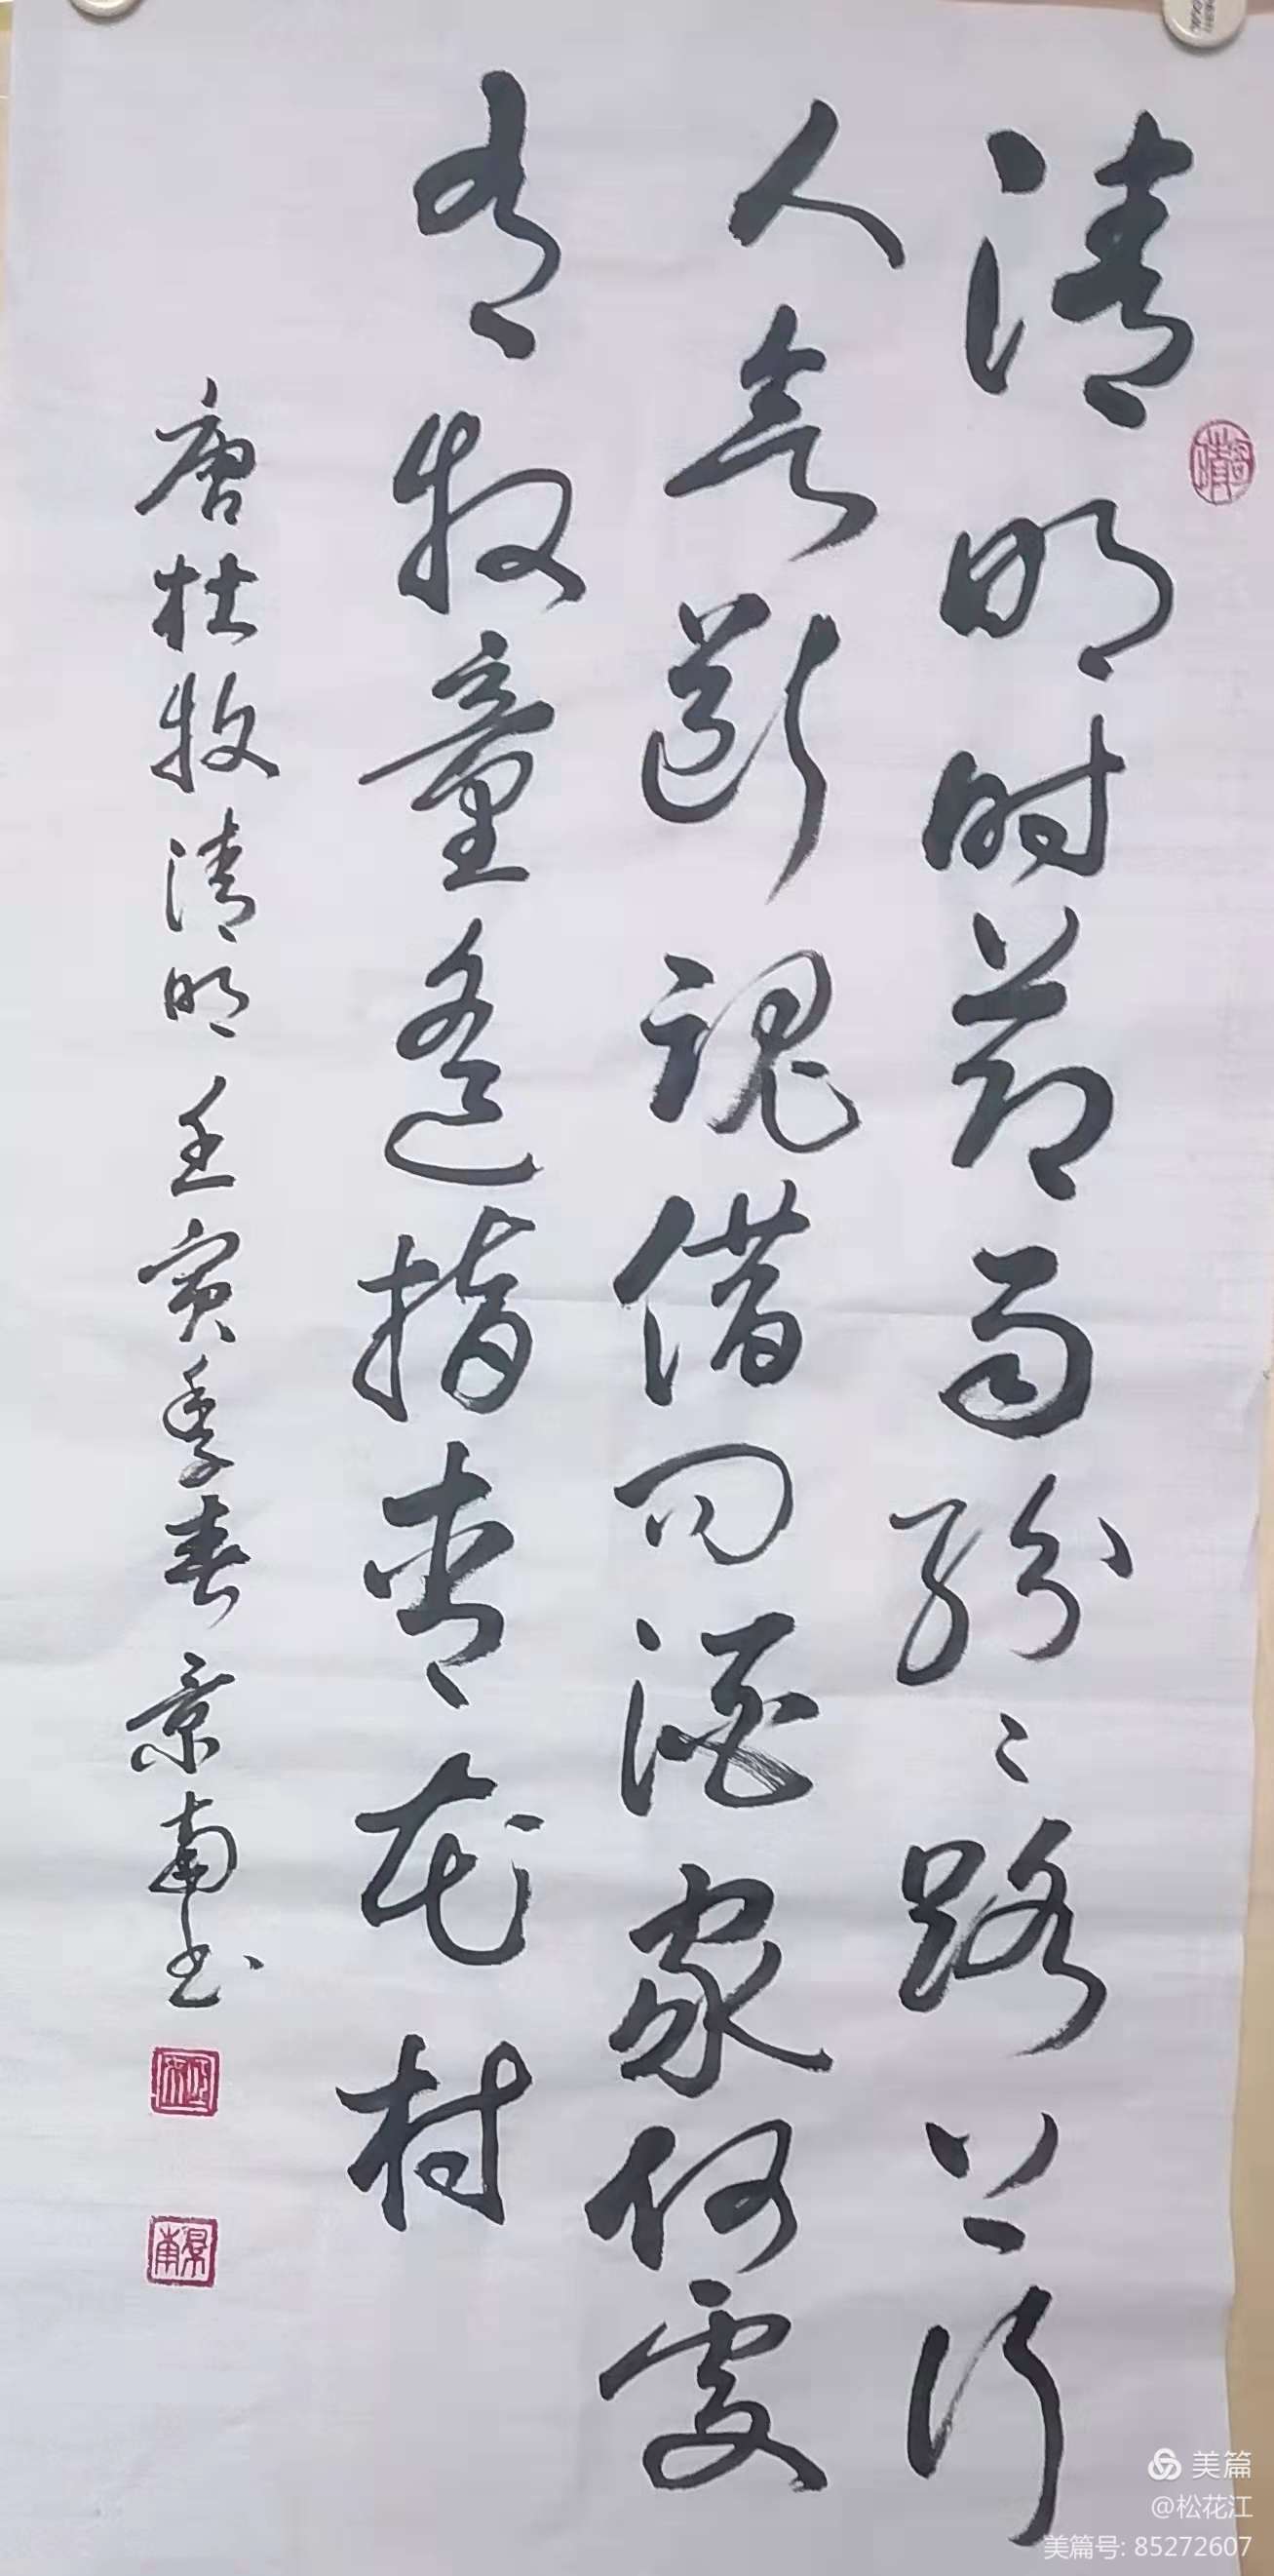 清明时节雨纷〻路上行
人欲断魂借问酒家何處
有牧童遥指杏花村
唐杜牧清明壬寅季春景南书
景南
美篇
@松花江
美篇号: 85272607